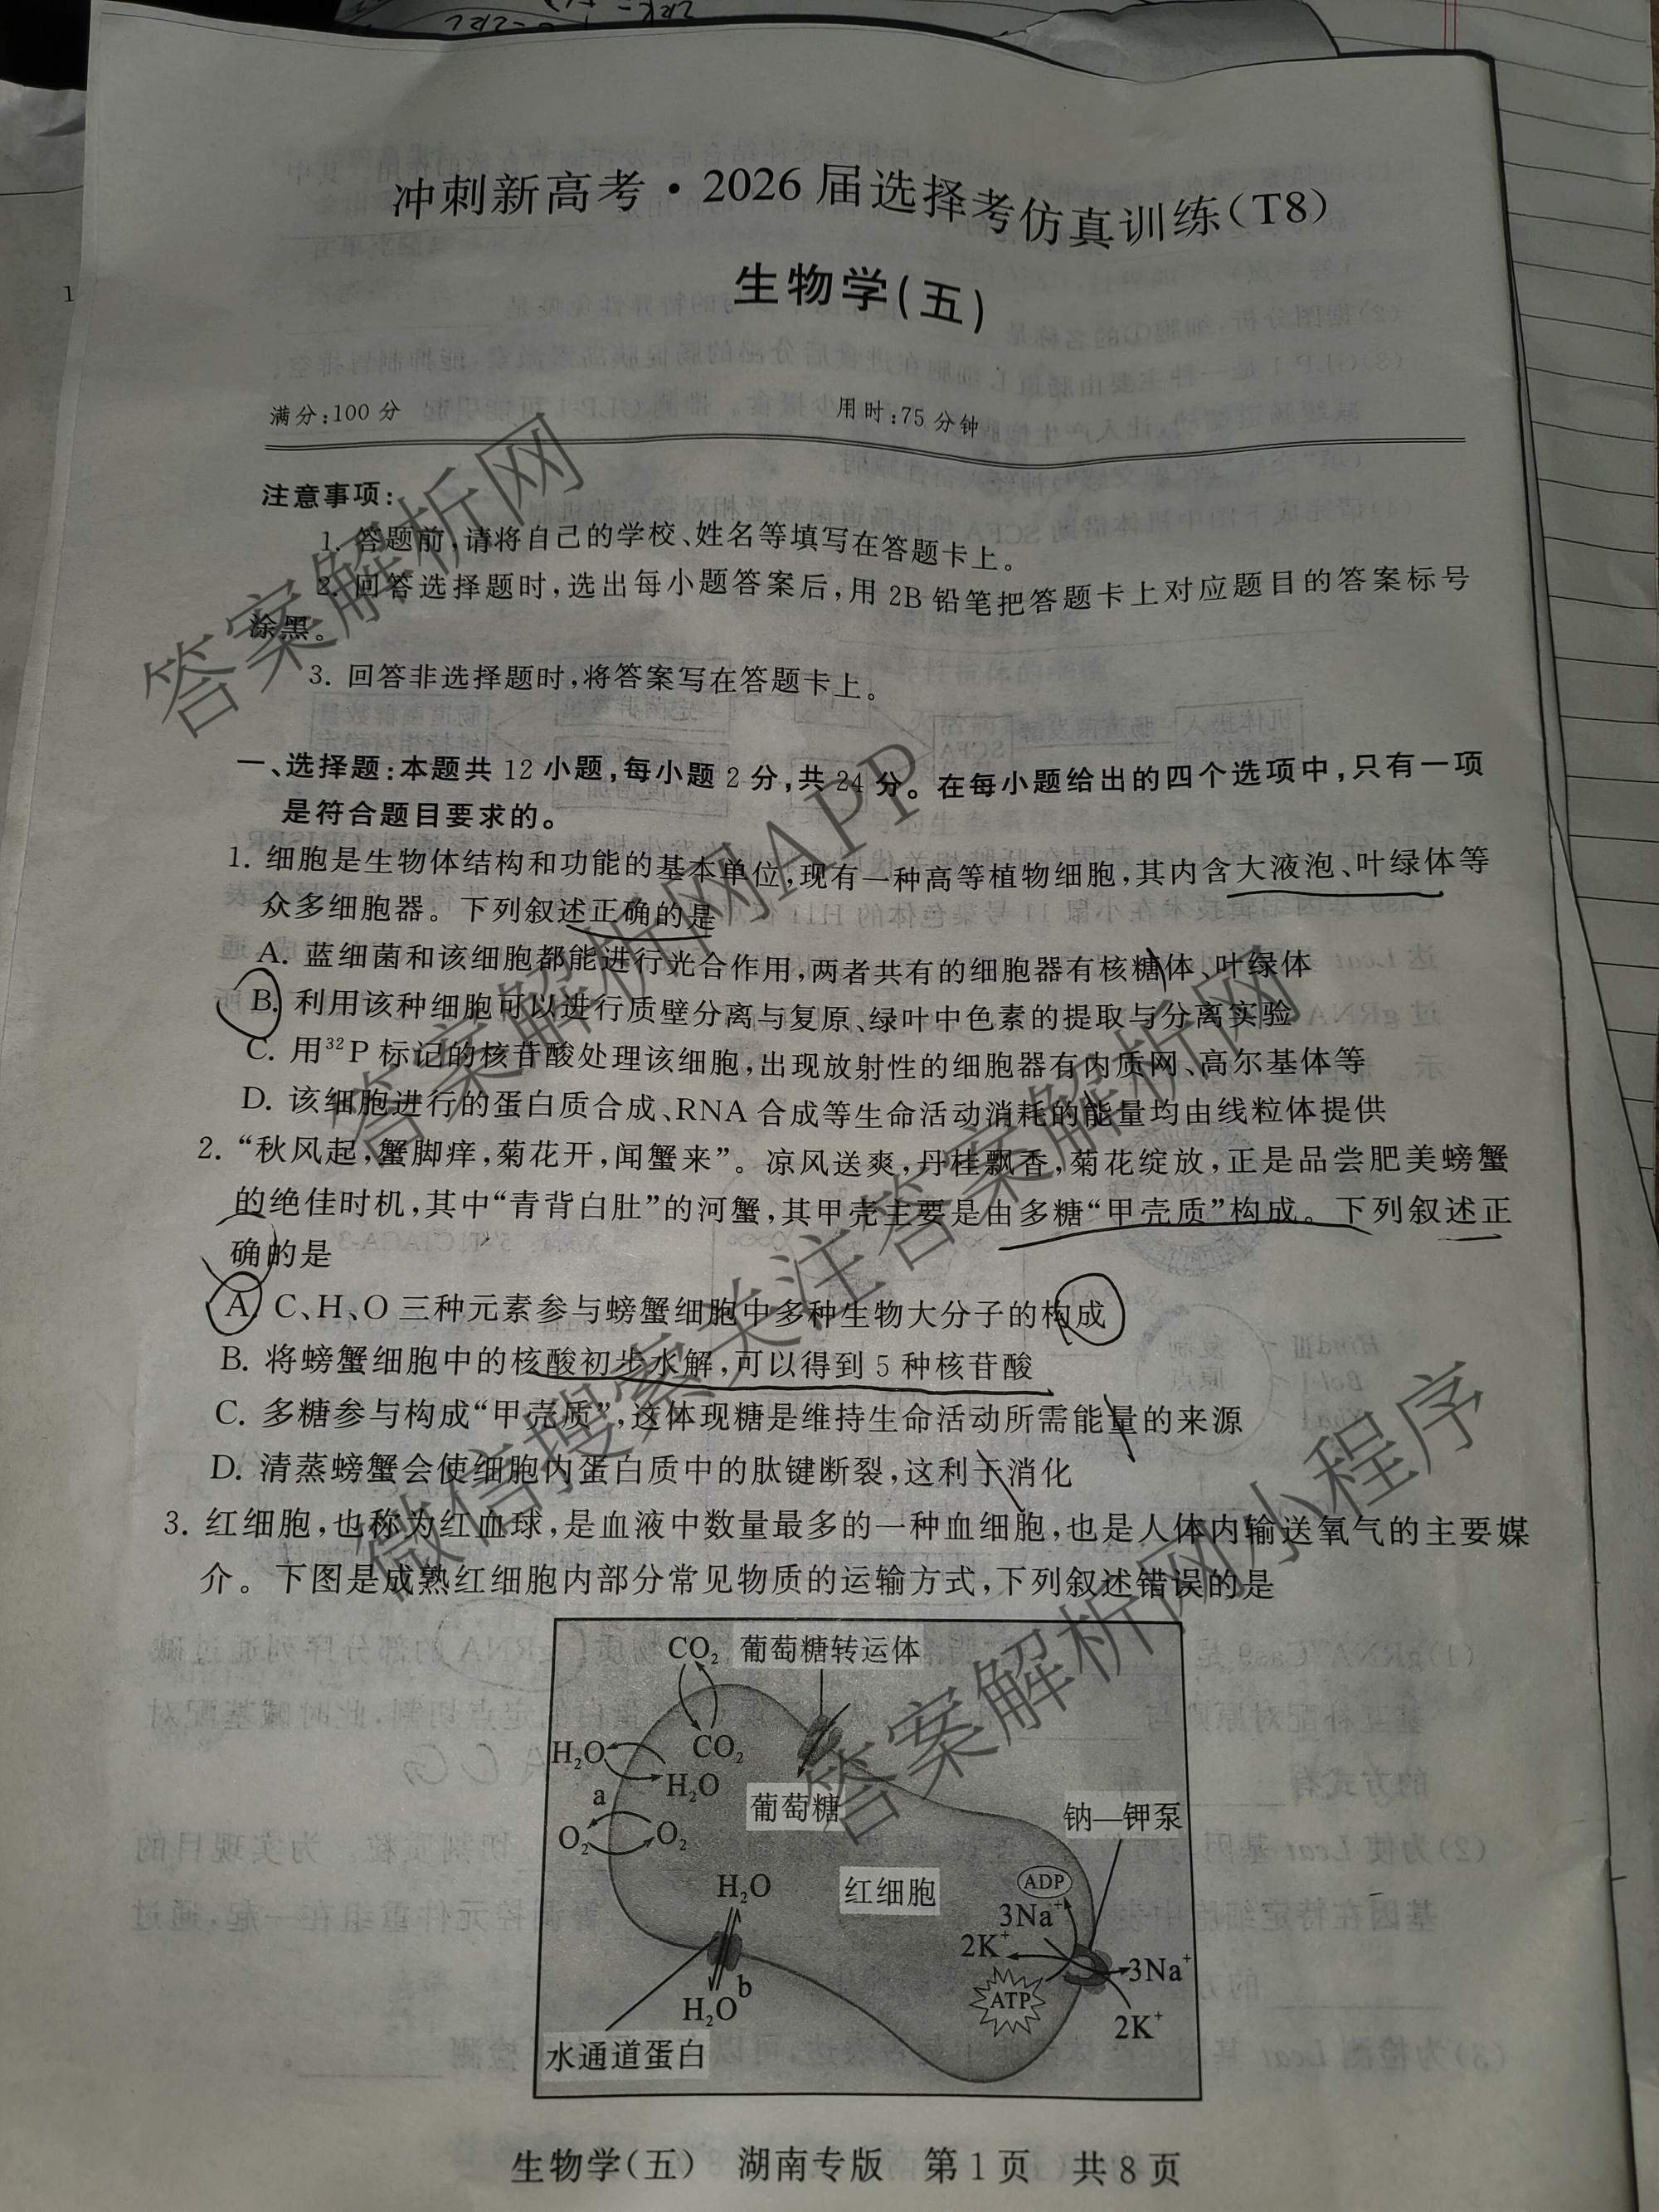 冲刺新高考·2026届选择考仿真训练(T8)
生物学(五)
满分:100分 用时:75分钟
注意事项:
1. 答题前,请将自己的学校、姓名等填写在答题卡上。
2. 回答选择题时,选出每小题答案后,用2B铅笔把答题卡上对应题目的答案标号
涂黑。
3. 回答非选择题时,将答案写在答题卡上。
一、选择题:本题共12小题,每小题2分,共24分。在每小题给出的四个选项中,只有一项
是符合题目要求的。
1. 细胞是生物体结构和功能的基本单位,现有一种高等植物细胞,其内含大液泡、叶绿体等
众多细胞器。下列叙述正确的是
A. 蓝细菌和该细胞都能进行光合作用,两者共有的细胞器有核糖体、叶绿体
B. 利用该种细胞可以进行质壁分离与复原、绿叶中色素的提取与分离实验
C. 用³²P标记的核苷酸处理该细胞,出现放射性的细胞器有内质网、高尔基体等
D. 该细胞进行的蛋白质合成、RNA合成等生命活动消耗的能量均由线粒体提供
2. “秋风起,蟹脚痒,菊花开,闻蟹来”。凉风送爽,丹桂飘香,菊花绽放,正是品尝肥美螃蟹
的绝佳时机,其中“青背白肚”的河蟹,其甲壳主要是由多糖“甲壳质”构成。下列叙述正
确的是
A. C、H、O三种元素参与螃蟹细胞中多种生物大分子的构成
B. 将螃蟹细胞中的核酸初步水解,可以得到5种核苷酸
C. 多糖参与构成“甲壳质”,这体现糖是维持生命活动所需能量的来源
D. 清蒸螃蟹会使细胞内蛋白质中的肽键断裂,这利于消化
3. 红细胞,也称为红血球,是血液中数量最多的一种血细胞,也是人体内输送氧气的主要媒
介。下图是成熟红细胞内部分常见物质的运输方式,下列叙述错误的是
CO₂ 葡萄糖转运体
H₂O CO₂
H₂O
a 葡萄糖 钠—钾泵
O₂ O₂
H₂O 红细胞 ADP
3Na⁺
2K⁺
3Na⁺
b ATP
H₂O 2K⁺
水通道蛋白
生物学(五) 湖南专版 第1页 共8页
1
答案解析网
答案解析网APP
微信搜索关注答案解析网
答案解析网小程序